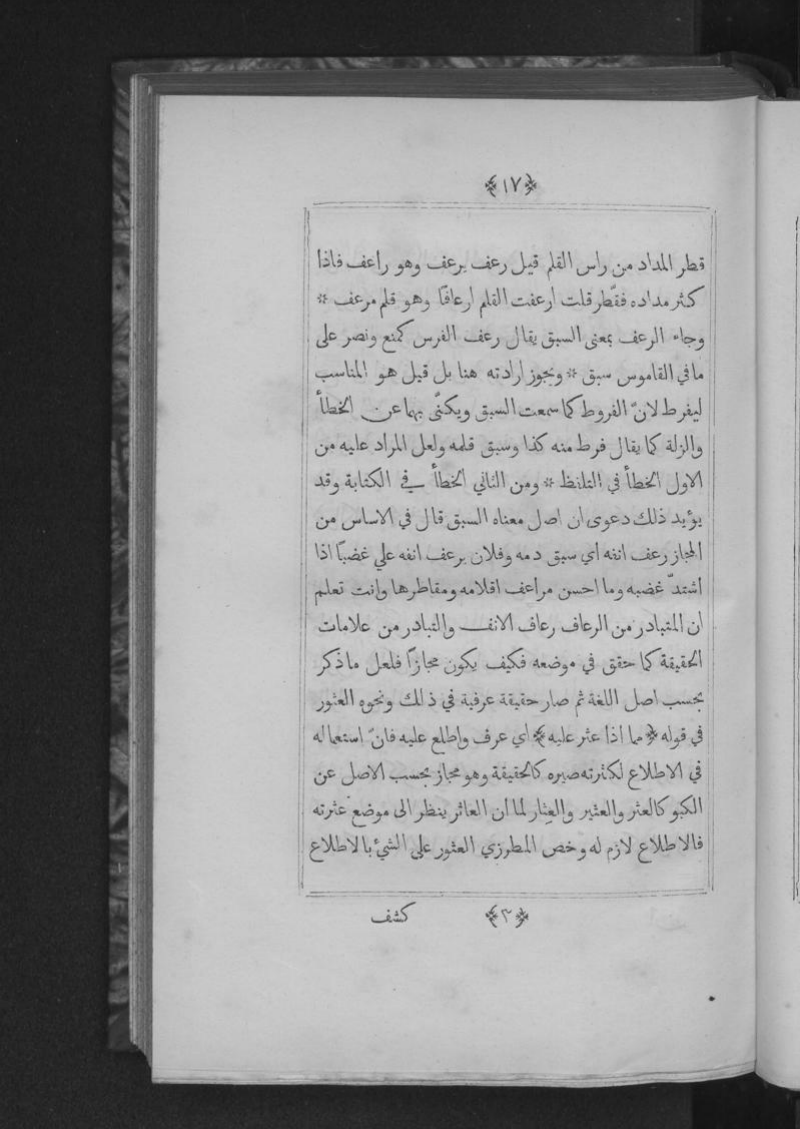 ﴿١٧﴾
قطر المداد من راس القلم قيل رعف يرعف وهو راعف فاذا
كثر مداده فقطر قلت ارعفت القلم ارعافا وهو قلم مرعف *
وجاء الرعف بمعنى السبق يقال رعف الفرس كمنع ونصر على
ما في القاموس سبق * ويجوز ارادته هنا بل قيل هو المناسب
ليفرط لانّ الفروط كما سمعت السبق ويكنّى بهما عن الخطأ
والزلة كما يقال فرط منه كذا وسبق قلمه ولعل المراد عليه من
الاول الخطأ في التلفظ * ومن الثاني الخطأ في الكتابة وقد
يؤيد ذلك دعوى ان اصل معناه السبق قال في الاساس من
المجاز رعف انفه أي سبق دمه وفلان يرعف انفه علي غضبًا اذا
اشتدّ غضبه وما احسن مراعف اقلامه ومقاطرها وانت تعلم
ان المتبادر من الرعاف رعاف الانف والتبادر من علامات
الحقيقة كما حقق في موضعه فكيف يكون مجازًا فلعل ما ذكر
بحسب اصل اللغة ثم صار حقيقة عرفية في ذلك ونحوه العثور
في قوله ﴿مما اذا عثر عليه﴾ اي عرف واطلع عليه فانّ استعماله
في الاطلاع لكثرته صيره كالحقيقة وهو مجاز بحسب الاصل عن
الكبو كالعثر والعثير والعثار لما أن العاثر ينظر الى موضع عثرته
فالاطلاع لازم له وخص المطرزي العثور على الشيء بالاطلاع
﴿٣﴾ كشف